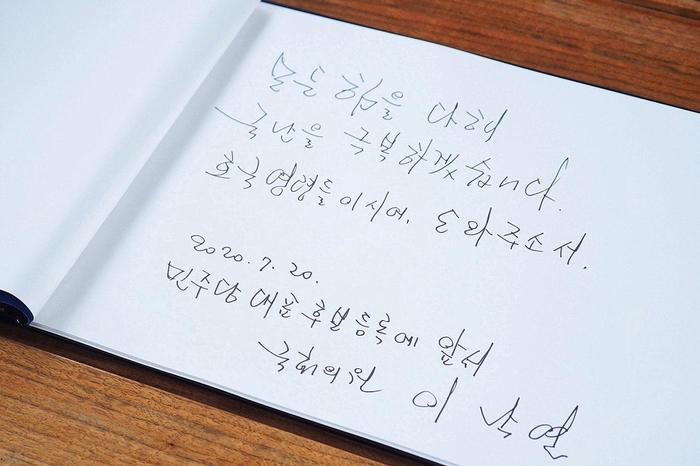 모든 힘을 다해
국난을 극복하겠습니다.
호국영령들이시여, 도와주소서.
2020. 7. 20.
민주당 대표 후보 등록에 앞서
국회의원 이낙연